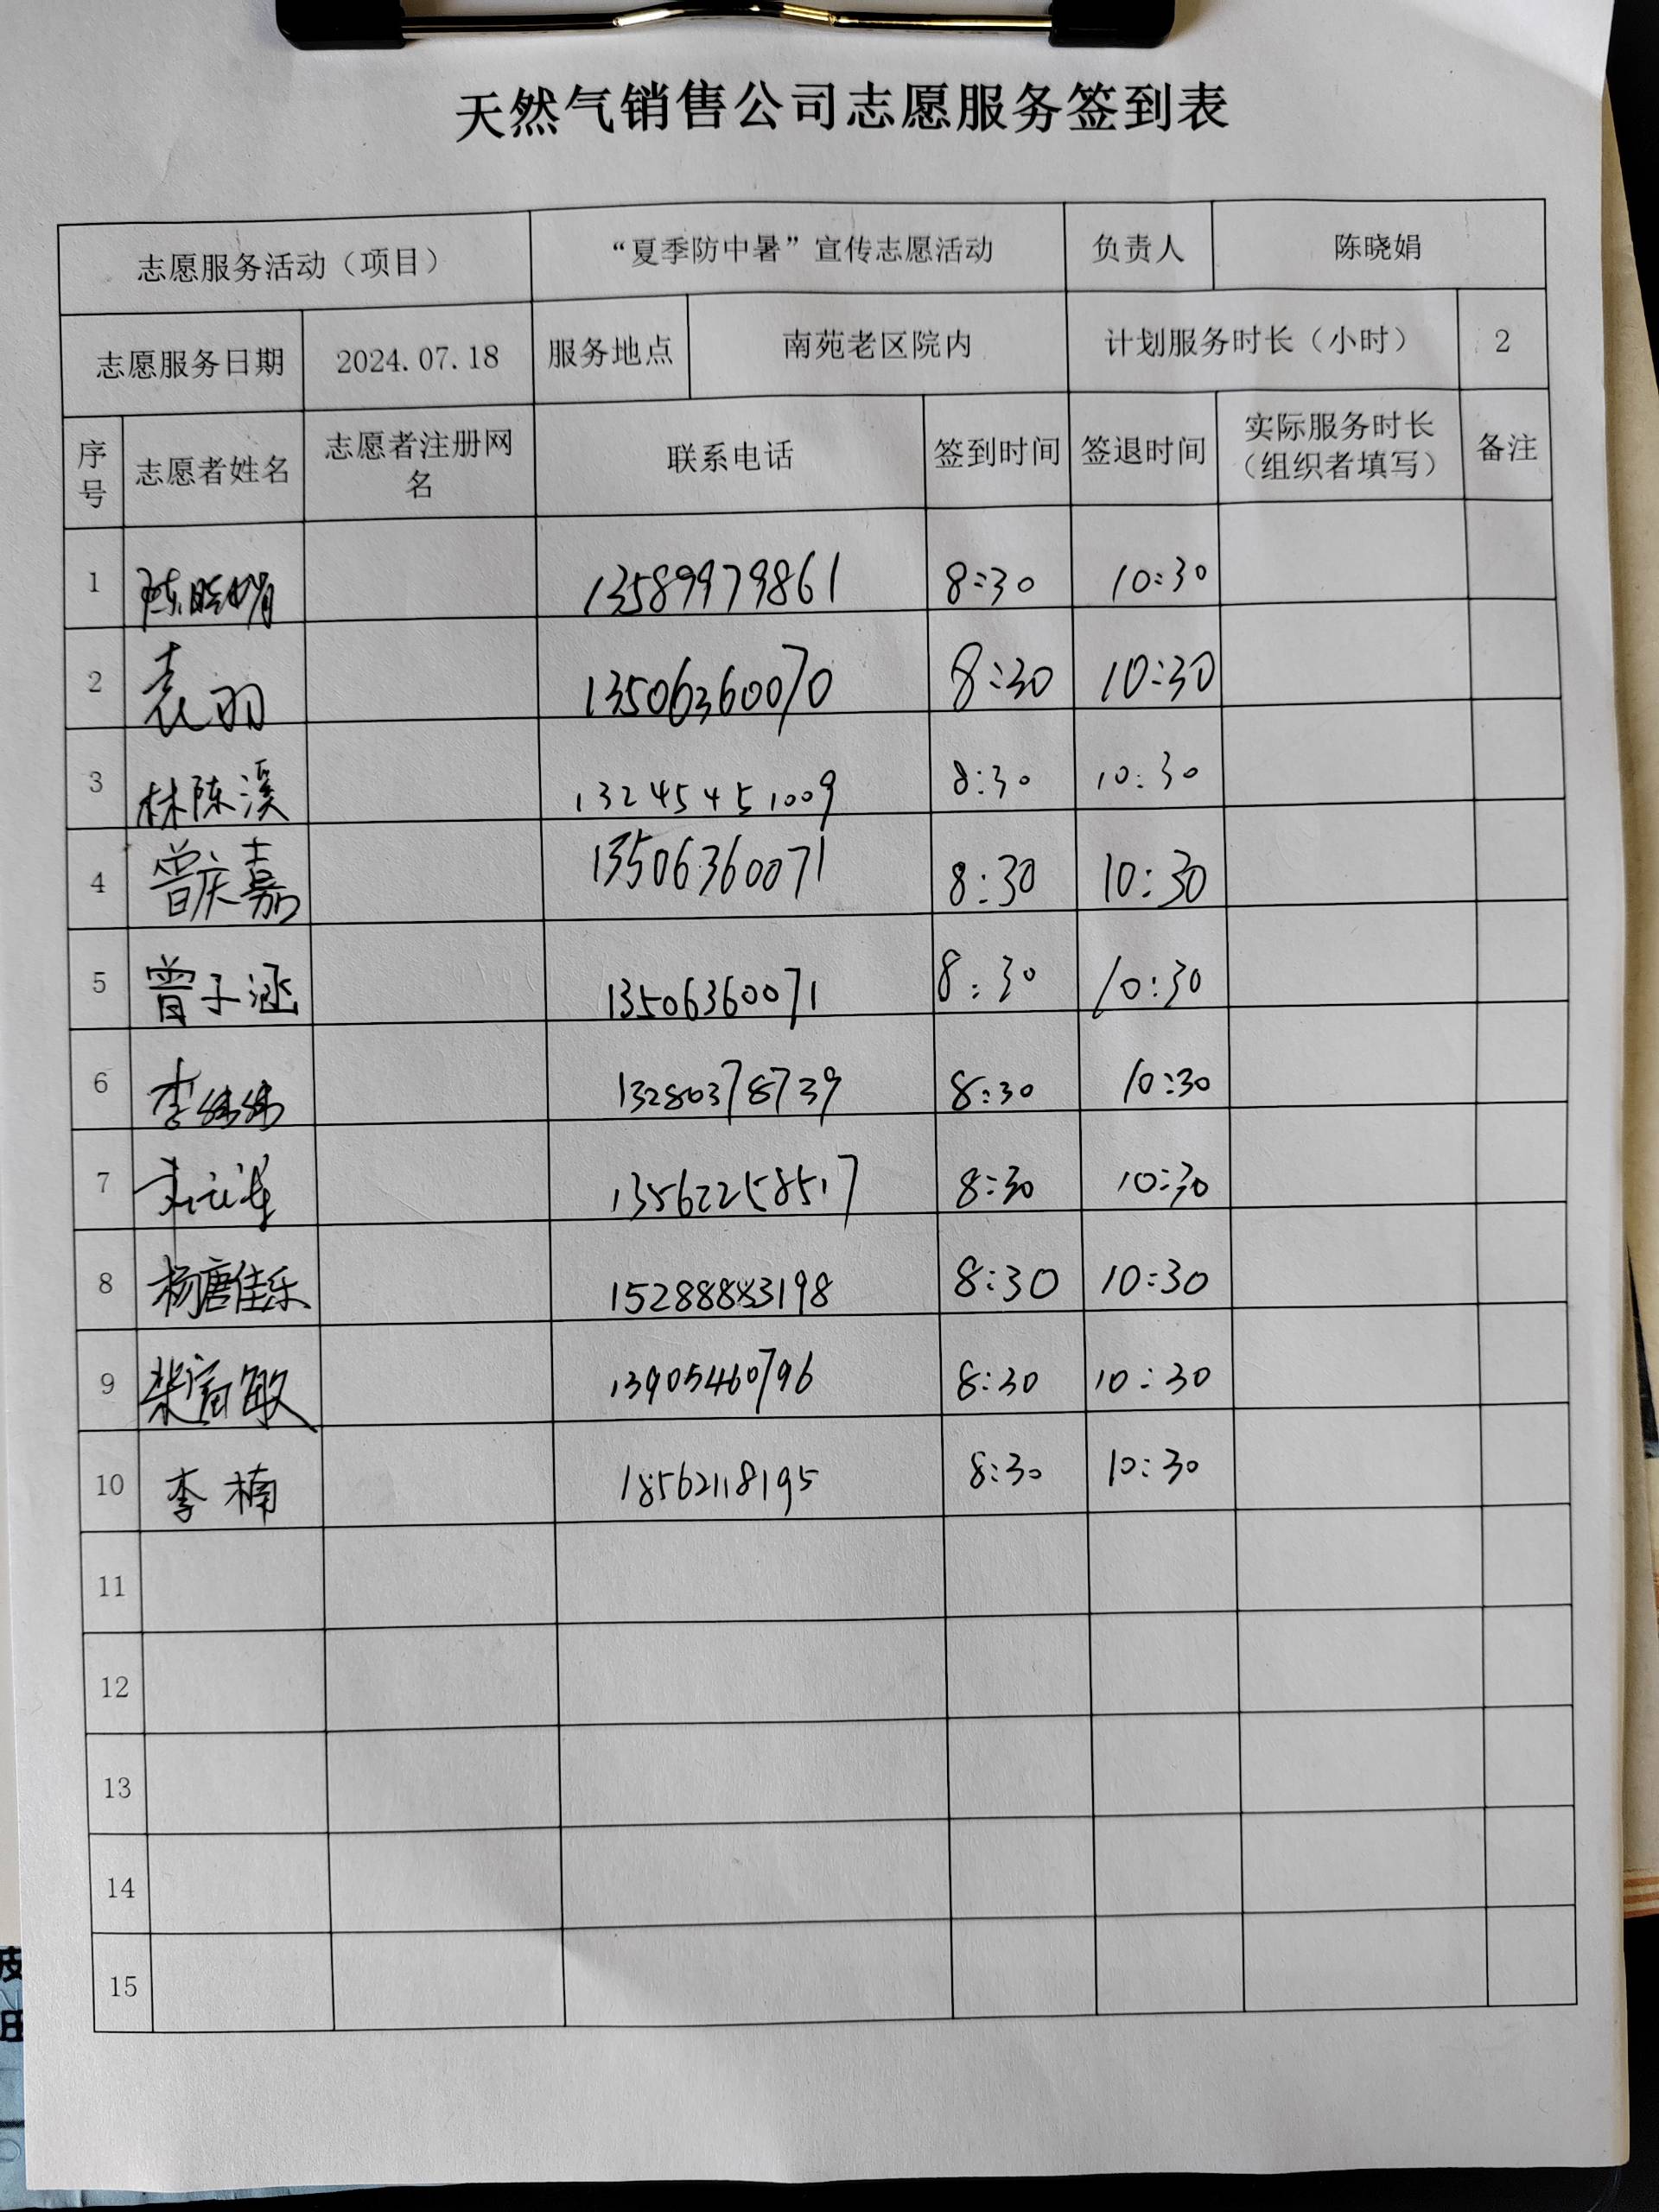 天然气销售公司志愿服务签到表
志愿服务活动（项目） “夏季防中暑”宣传志愿活动 负责人 陈晓娟
志愿服务日期 2024.07.18 服务地点 南苑老区院内 计划服务时长（小时） 2
序号 志愿者姓名 志愿者注册网名 联系电话 签到时间 签退时间 实际服务时长（组织者填写） 备注
1 陈晓娟 13589979861 8:30 10:30
2 袁羽 13506360070 8:30 10:30
3 林陈溪 13245451009 8:30 10:30
4 曾庆嘉 13506360071 8:30 10:30
5 曾子涵 13506360071 8:30 10:30
6 李纬纬 13280378739 8:30 10:30
7 13562258517 8:30 10:30
8 杨唐佳乐 15288883198 8:30 10:30
9 柴富敏 13905460796 8:30 10:30
10 李楠 18562118195 8:30 10:30
11
12
13
14
15